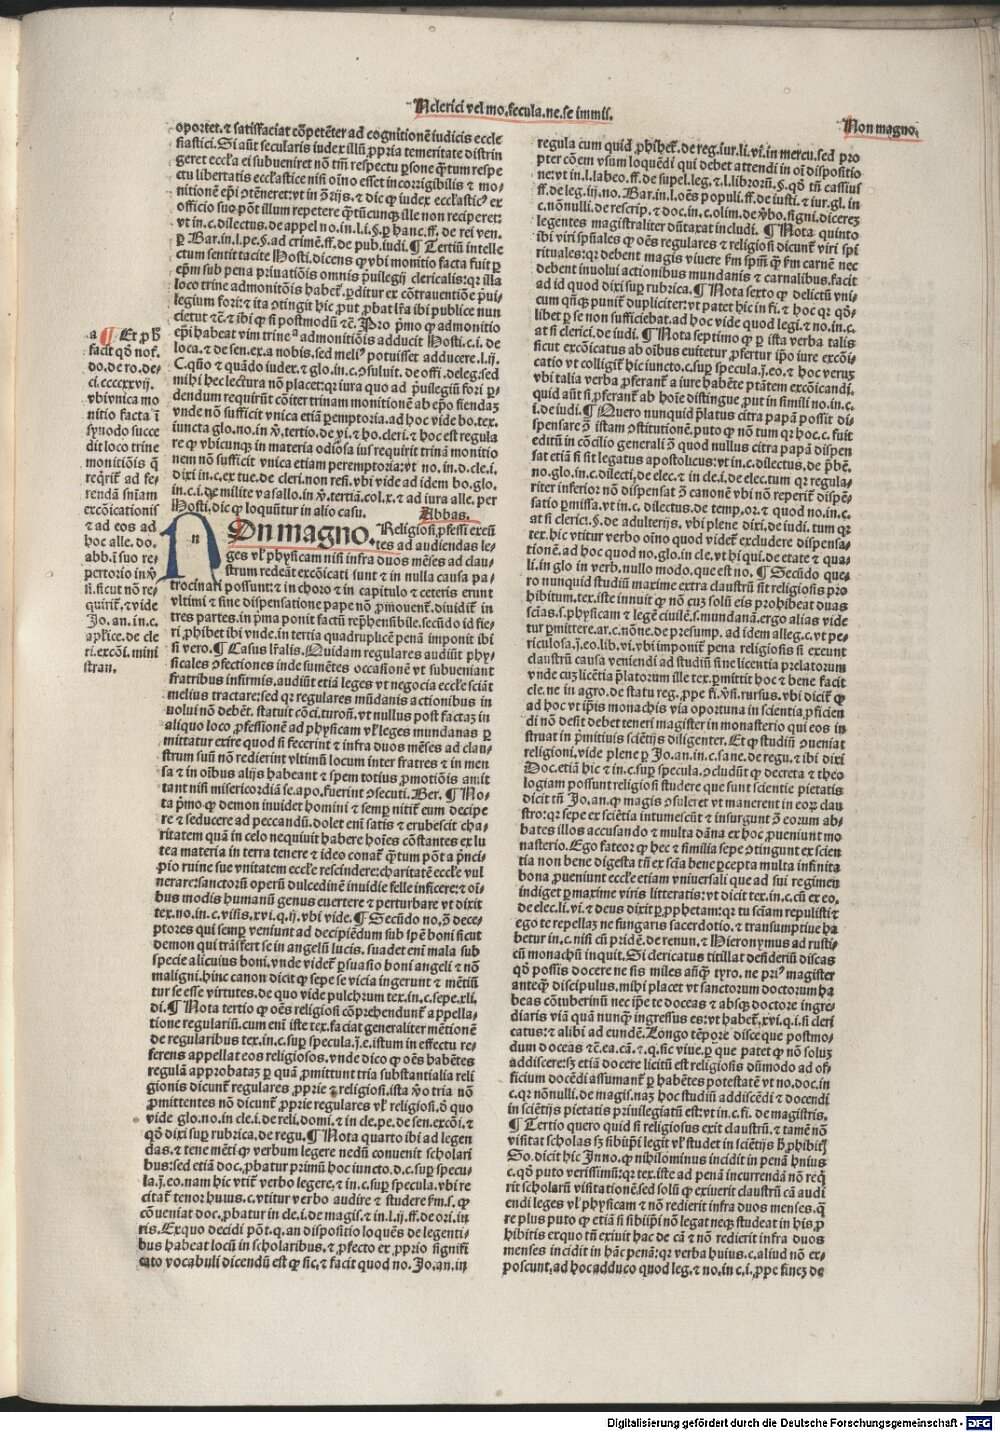 Nclerici vel mo. secula. ne. se immis.
Non magno.
oportet. ⁊ satisfaciat cõpetẽter ad cognitionẽ iudicis eccle
siastici. Si aũt secularis iudex illũ ꝓpria temeritate distrin
geret eccľa ei subueniret nõ tm̃ respectu ꝑsone q̃tum respe
ctu libertatis ecclꝰastice nisi oĩno esset incorrigibilis ⁊ mo-
officio suo põt illum repetere q̃tũcunqꝫ ille non reciperet:
vt in. c. dilectus. de appel no. in. l. i. §. ꝑ hanc. ff. de rei ven.
ꝑ Bar. in. l. pe. §. ad crimẽ. ff. de pub. iudi. ¶ Tertiũ intelle
ctum sentit tacite Hosti. dicens ꝙ vbi monitio facta fuit ꝑ
ep̃m sub pena priuatiõis omnis p̃uilegij clericalis: qꝛ illa
loco trine admonitõis habet̃. ꝑditur ex cõtrauentiõe p̃ui-
legium fori: ⁊ ita ↄtingit hic put ꝓbat lr̃a ibi publice nun
cietur ⁊c̃. ⁊ ibi ꝙ si postmodũ ⁊c̃. Pro p̃mo ꝙ admonitio
ep̃i habeat vim trine admonitiõis adducit Hosti. c. i. de
loca. ⁊ de sen. ex. a nobis. sed meliꝰ potuisset adducere. l. ij.
C. quõ ⁊ quãdo iudex. ⁊ glo. in. c. ↄsuluit. de offi. deleg: sed
mihi hec lectura nõ placet: qꝛ iura quo ad p̃uilegiũ fori ꝑ-
dendum requirũt cõiter trinam monitionẽ ab ep̃o fiendaꝫ
vnde nõ sufficit vnica etiã ꝑemptoria. ad hoc vide bo. tex.
iuncta glo. no. in ꝟ. tertio. de vi. ⁊ ho. cleri. ⁊ hoc est regula
re ꝙ vbicunqꝫ in materia odiosa ius requirit trinã monitio
nem nõ sufficit vnica etiam peremptoria: vt no. in. d. cle. i.
dixi in. c. ex tue. de cleri. non resi. vbi vide ad idem bo. glo.
in. c. i. de milite vasallo. in ꝟ. tertiã. col. x. ⁊ ad iura alle. per
Hosti. dic ꝙ loquũtur in alio casu. Abbas.
a ¶ Et ꝓb̃
facit qõ not̃.
do. de ro. de-
ci. ccccxxvij.
vbi vnica mo
nitio facta ĩ
synodo succe
dit loco trine
monitiõis q̃
req̃rit̃ ad fe-
rendã sñiam
excõicationis
⁊ ad eos ad
hoc alle. do.
abb. ĩ suo re-
pertorio in ꝟ
si. sicut nõ re-
quirit̃. ⁊ vide
Jo. an. in. c.
aplĩce. de cle
ri. excõi. mini
stran.
NOn magno. Religiosi ꝓfessi exeũ
tes ad audiendas le-
ges vľ physicam nisi infra duos mẽses ad clau-
strum redeãt excõicati sunt ⁊ in nulla causa pa-
trocinari possunt: ⁊ in choro ⁊ in capitulo ⁊ ceteris erunt
vltimi ⁊ sine dispensatione pape nõ ꝓmouent̃. diuidit̃ in
tres partes. in p̃ma ponit factũ repħensibile. secũdo id fie-
ri ꝓhibet ibi vnde. in tertia quadruplicẽ penã imponit ibi
si vero. ¶ Casus lr̃alis. Quidam regulares audiũt phy-
sicales ↄfectiones inde sumẽtes occasionẽ vt subueniant
fratribus infirmis. audiũt etiã leges vt negocia eccľe sciãt
melius tractare: sed qꝛ regulares mũdanis actionibus in
uolui nõ debẽt. statuit cõci. turoñ. vt nullus post factaꝫ in
aliquo loco ꝓfessionẽ ad physicam vľ leges mundanas ꝑ
mittatur exire quod si fecerint ⁊ infra duos mẽses ad clau-
strum suũ nõ redierint vltimũ locum inter fratres ⁊ in men
sa ⁊ in oĩbus alijs habeant ⁊ spem totius ꝓmotiõis amit
tant nisi misericordiã se. apo. fuerint ↄsecuti. Ber. ¶ No-
ta p̃mo ꝙ demon inuidet homini ⁊ semꝑ nitit̃ eum decipe
re ⁊ seducere ad peccandũ. dolet em̃ satis ⁊ erubescit cha-
ritatem quã in celo nequiuit habere hoĩes cõstantes ex lu
tea materia in terra tenere ⁊ ideo conat̃ q̃tum põt a p̃nci-
pio ruine sue vnitatem eccľe rescindere: charitatẽ eccľe vul
nerare: sanctorũ operũ dulcedinẽ inuidie felle inficere: ⁊ oĩ
bus modis humanũ genus euertere ⁊ perturbare vt dixit
tex. no. in. c. visis. xvi. q. ij. vbi vide. ¶ Secũdo no. ꝫ dece-
ptores qui semꝑ veniunt ad decipiẽdum sub spẽ boni sicut
demon qui trãsfert se in angelũ lucis. suadet em̃ mala sub
specie alicuius boni. vnde videt̃ ꝑsuasio boni angeli ⁊ nõ
maligni. hinc canon dicit ꝙ sepe se vicia ingerunt ⁊ mẽtiũ
tur se esse virtutes. de quo vide pulchrum tex. in. c. sepe. xli.
di. ¶ Nota tertio ꝙ oẽs religiosi cõprehendunt̃ appella-
tione regulariũ. cum em̃ iste tex. faciat generaliter mẽtionẽ
de regularibus tex. in. c. suꝑ specula. j. e. istum in effectu re-
ferens appellat eos religiosos. vnde dico ꝙ oẽs habẽtes
regulã approbataꝫ ꝑ quã ꝓmittunt tria substantialia reli
gionis dicunt̃ regulares ꝓprie ⁊ religiosi. ista ꝟo tria nõ
ꝓmittentes nõ dicunt̃ ꝓprie regulares vľ religiosi. ð quo
vide glo. no. in cle. i. de reli. domi. ⁊ in cle. pe. de sen. excõi. ⁊
qõ dixi suꝑ rubrica. de regu. ¶ Nota quarto ibi ad legen
das. ⁊ tene mẽti ꝙ verbum legere nedũ conuenit scholari
bus: sed etiã doc. ꝓbatur primũ hoc iuncto. d. c. suꝑ specu-
la. j. eo. nam hic vtit̃ verbo legere. ⁊ in. c. suꝑ specula. vbi re
citat̃ tenor huius. c. vtitur verbo audire ⁊ studere s̃m. s. ꝙ
cõueniat doc. ꝓbatur in cle. i. de magis. ⁊ in. l. ij. ff. de ori. iu
ris. Ex quo decidi põt. q. an dispositio loquẽs de legenti-
bus habeat locũ in scholaribus. ⁊ ꝓfecto ex ꝓprio signifi
cato vocabuli dicendũ est ꝙ sic. ⁊ facit quod no. Jo. an. in
regula cum quid ꝓhibet̃. de reg. iur. li. vi. in mercu. sed pro
pter cõem vsum loquẽdi qui debet attendi in oĩ dispositio
ne: vt in. l. labeo. ff. de supel. leg. ⁊. l. librorũ. §. qõ tñ cassius
ff. de leg. iij. no. Bar. in. l. oẽs populi. ff. de iusti. ⁊ iur. gl. in
c. nõnulli. de rescrip. ⁊ doc. in. c. olim. de ꝟbo. signi. diceres
legentes magistraliter dũtaxat includi. ¶ Nota quinto
ibi viri spũales ꝙ oẽs regulares ⁊ religiosi dicunt̃ viri spi
rituales: qꝛ debent magis viuere s̃m spm̃ q̃ s̃m carnẽ nec
debent inuolui actionibus mundanis ⁊ carnalibus. facit
ad id quod dixi suꝑ rubrica. ¶ Nota sexto ꝙ delictũ vni-
cum qñqꝫ punit̃ dupliciter: vt patet hic in fi. ⁊ hoc qꝛ qõ-
libet ꝑ se non sufficiebat. ad hoc vide quod legi. ⁊ no. in. c.
at si clerici. de iudi. ¶ Nota septimo ꝙ ꝑ ista verba talis
sicut excõicatus ab oĩbus euitetur ꝓfertur ip̃o iure excõi-
catio vt colligit̃ hic iuncto. c. suꝑ specula. j. eo. ⁊ hoc verum
vbi talia verba ꝓferant̃ a iure habẽte ptãtem excõicandi.
quid aũt si ꝓferant̃ ab hoĩe distingue put in simili no. in. c.
i. de iudi. ¶ Quero nunquid p̃latus citra papã possit di-
spensare ꝫ istam ↄstitutionẽ. puto ꝙ nõ tum qꝛ hoc. c. fuit
editũ in cõcilio generali ꝫ quod nullus citra papã dispen
sat etiã si sit legatus apostolicus: vt in. c. dilectus. de p̃bẽ.
no. glo. in. c. dilecti. de elec. ⁊ in cle. i. de elec. tum qꝛ regula-
riter inferior nõ dispensat ꝫ canonẽ vbi nõ reperit̃ dispẽ-
satio ꝑmissa. vt in. c. dilectus. de temp. or. ⁊ quod no. in. c.
at si clerici. §. de adulterijs. vbi plene dixi. de iudi. tum qꝛ
tex. hic vtitur verbo oĩno quod videt̃ excludere dispensa-
tionẽ. ad hoc quod no. glo. in cle. vt hi qui. de etate ⁊ qua-
li. in glo in verb. nullo modo. que est no. ¶ Secũdo que-
ro nunquid studiũ maxime extra claustrũ sit religiosis pro
hibitum. tex. iste innuit ꝙ nõ cuꝫ solũ eis prohibeat duas
scias. s. physicam ⁊ legẽ ciuilẽ. s. mundanã. ergo alias vide
tur ꝑmittere. ar. c. nõne. de presump. ad idem alleg. c. vt pe-
riculosa. j. eo. lib. vi. vbi imponit̃ pena religiosis si exeunt
claustrũ causa veniendi ad studiũ sine licentia prelatorum
vnde cuꝫ licẽtia p̃latorum ille tex. ꝑmittit hoc ⁊ bene facit
cle. ne in agro. de statu reg. ꝓpe fi. ꝟsi. rursus. vbi dicit̃ ꝙ
ad hoc vt ip̃is monachis via oportuna in scientia ꝓficien
di nõ desit debet teneri magister in monasterio qui eos in
struat in p̃mitiuis sciẽtijs diligenter. Et ꝙ studiũ ↄueniat
religioni. vide plene ꝑ Jo. an. in. c. sane. de regu. ⁊ ibi dixi
Doc. etiã hic ⁊ in. c. suꝑ specula. ↄcludũt ꝙ decreta ⁊ theo
logiam possunt religiosi studere que sunt scientie pietatis
dicit tñ Jo. an. ꝙ magis ↄsuleret vt manerent in eoꝝ clau
stro: qꝛ sepe ex sciẽtia intumescũt ⁊ insurgunt ꝫ eorum ab-
bates illos accusando ⁊ multa dãna ex hoc ꝓueniunt mo
nasterio. Ego fateor ꝙ hec ⁊ similia sepe ↄtingunt ex scien
tia non bene digesta tñ ex scia bene ꝑcepta multa infinita
bona ꝓueniunt eccľe etiam vniuersali que ad sui regimen
indiget ꝑmaxime viris litteratis: vt dicit tex. in. c. cũ ex eo.
de elec. li. vi. ⁊ deus dixit ꝑ ꝓphetam: qꝛ tu scĩam repulisti ⁊
ego te repellaꝫ ne fungaris sacerdotio. ⁊ transumptiue ha
betur in. c. nisi cũ pridẽ. de renun. ⁊ Hieronymus ad rusti-
cũ monachũ inquit. Si clericatus titillat desideriũ discas
qõ possis docere ne sis miles añq̃ tyro. ne priꝰ magister
anteq̃ discipulus. mihi placet vt sanctorum doctorum ha
beas cõtuberniũ nec ip̃e te doceas ⁊ absqꝫ doctore ingre-
diaris viã quã nunq̃ ingressus es: vt habet̃. xvi. q. i. si cleri
catus: ⁊ alibi ad eundẽ. Longo tẽpore disce que postmo-
dum doceas ⁊c̃. ea. cã. ⁊. q. sic viue. ꝑ que patet ꝙ nõ soluꝫ
addiscere: sꝫ etiã docere licitũ est religiosis dũmodo ad of-
ficium docẽdi assumant̃ ꝑ habẽtes potestatẽ vt no. doc. in
c. qꝛ nõnulli. de magis. naꝫ hoc studiũ addiscẽdi ⁊ docendi
in sciẽtijs pietatis priuilegiatũ est: vt in. c. fi. de magistris.
¶ Tertio quero quid si religiosus exit claustrũ. ⁊ tamẽ nõ
visitat scholas sꝫ sibiip̃i legit vľ studet in sciẽtijs h̃ ꝓhibit̃
So. dicit hic Inno. ꝙ nihilominus incidit in penã huius
c. qõ puto verissimũ: qꝛ tex. iste ad penã incurrendã nõ req̃
rit scholarũ visitationẽ sed solũ ꝙ exiuerit claustrũ cã audi
endi leges vľ physicam ⁊ nõ redierit infra duos menses. q̃
re plus puto ꝙ etiã si sibiip̃i nõ legat neqꝫ studeat in his ꝓ
hibitis ex quo tñ exiuit hac de cã ⁊ nõ redierit infra duos
menses incidit in hãc penã: qꝛ verba huius. c. aliud nõ ex-
poscunt. ad hoc adduco quod leg. ⁊ no. in. c. i. ꝓpe fineꝫ de
Digitalisierung gefördert durch die Deutsche Forschungsgemeinschaft - DFG